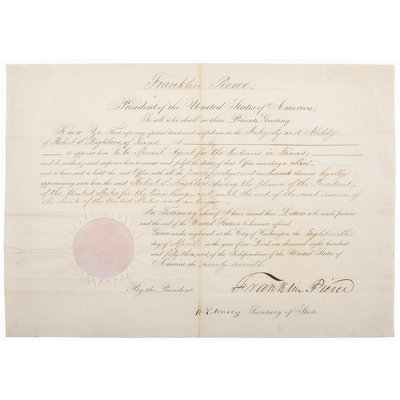 Franklin Pierce,
President of the United States of America,
To all who shall see these Presents, Greeting:
Know Ye, That reposing special trust and confidence in the Integrity and Ability
of Robert S. Neighbors, of Texas
do appoint him to be Special Agent for the Indians in Texas
and do authorize and empower him to execute and fulfil the duties of that Office according to Law;
and to have and to hold the said Office, with all the powers, privileges and emoluments thereunto legally
appertaining unto him the said Robert S. Neighbors, during the pleasure of the President
of the United States for the time being, and until the end of the next session
of the Senate of the United States and no longer.
In Testimony whereof, I have caused these Letters to be made patent
and the seal of the United States to be hereunto affixed.
Given under my hand, at the City of Washington, the
day of in the year of our Lord one thousand eight hundred
and and of the Independence of the United States of
America, the seventy seventh.
Franklin Pierce
By the President
Secretary of State.